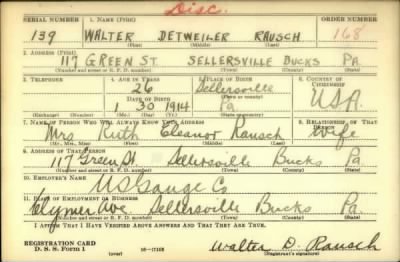 Disc.
SERIAL NUMBER 1. NAME (Print) ORDER NUMBER
139 WALTER DETWEILER RAUSCH 168
(First) (Middle) (Last)
2. ADDRESS (Print)
117 GREEN ST. SELLERSVILLE BUCKS PA.
(Number and street or R. F. D. number) (Town) (County) (State)
3. TELEPHONE 4. AGE IN YEARS 5. PLACE OF BIRTH 6. COUNTRY OF CITIZENSHIP
26 Sellersville
DATE OF BIRTH (Town or county) USA.
1 30 1914 Pa
(Exchange) (Number) (Mo.) (Day) (Yr.) (State or country)
7. NAME OF PERSON WHO WILL ALWAYS KNOW YOUR ADDRESS 8. RELATIONSHIP OF THAT PERSON
Mrs Ruth Eleanor Rausch wife
(Mr., Mrs., Miss) (First) (Middle) (Last)
9. ADDRESS OF THAT PERSON
117 Green St. Sellersville Bucks Pa
(Number and street or R. F. D. number) (Town) (County) (State)
10. EMPLOYER'S NAME
US Gauge Co
11. PLACE OF EMPLOYMENT OR BUSINESS
Clymer Ave Sellersville Bucks Pa.
(Number and street or R. F. D. number) (Town) (County) (State)
I AFFIRM THAT I HAVE VERIFIED ABOVE ANSWERS AND THAT THEY ARE TRUE.
REGISTRATION CARD
D. S. S. Form 1 (over) Walter D. Rausch
(Registrant's signature)